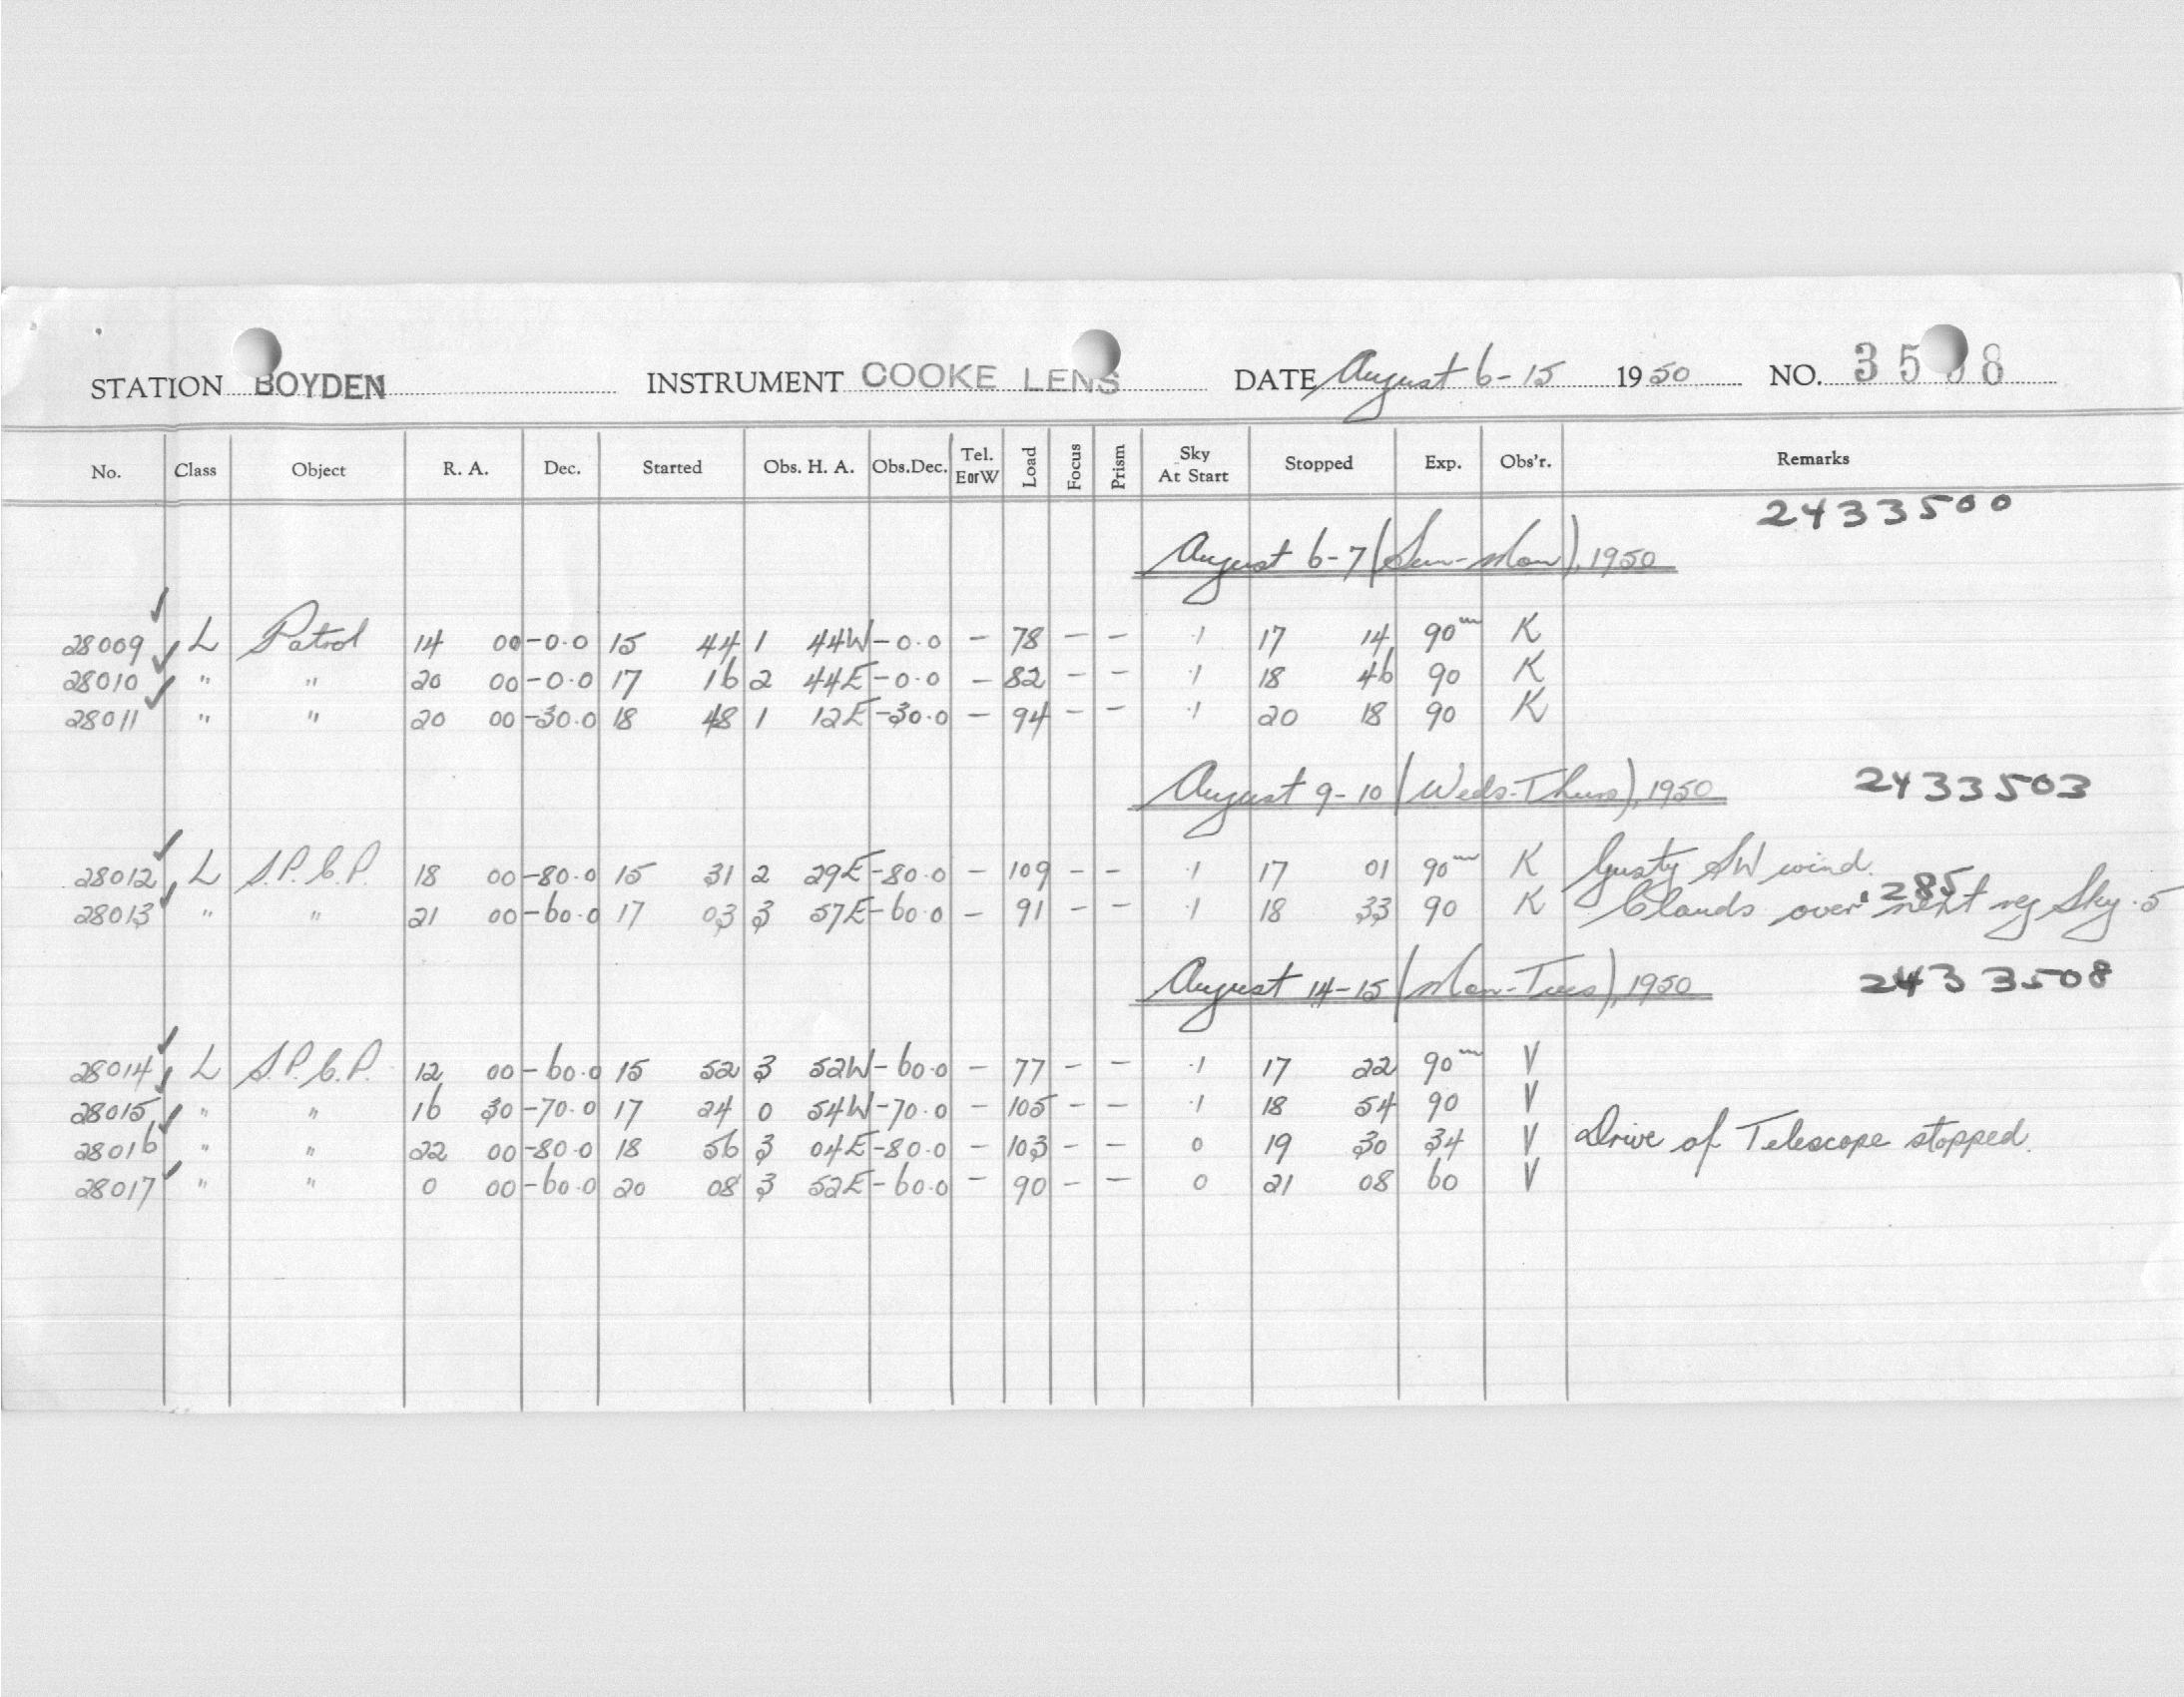 STATION BOYDEN INSTRUMENT COOKE LENS DATE August 6-15 1950 NO. 35 8
No. Class Object R. A. Dec. Started Obs. H. A. Obs.Dec. Tel. EorW Load Focus Prism Sky At Start Stopped Exp. Obs'r. Remarks
2433500
August 6-7 (Sun-Mon), 1950
28009 L Patrol 14 00 -0.0 15 44 1 44W -0.0 - 78 - - .1 17 14 90m K
28010 " " 20 00 -0.0 17 16 2 44E -0.0 - 82 - - .1 18 46 90 K
28011 " " 20 00 -30.0 18 48 1 12E -30.0 - 94 - - .1 20 18 90 K
August 9-10 (Weds-Thurs), 1950 2433503
28012 L S.P.C.P. 18 00 -80.0 15 31 2 29E -80.0 - 109 - - .1 17 01 90m K Gusty SW wind.
.285
28013 " " 21 00 -60.0 17 03 3 57E -60.0 - 91 - - .1 18 33 90 K Clouds over next reg Sky .5
August 14-15 (Mon-Tues), 1950 2433508
28014 L S.P.C.P. 12 00 -60.0 15 52 3 52W -60.0 - 77 - - .1 17 22 90m V
28015 " " 16 30 -70.0 17 24 0 54W -70.0 - 105 - - .1 18 54 90 V
28016 " " 22 00 -80.0 18 56 3 04E -80.0 - 103 - - 0 19 30 34 V Drive of Telescope stopped.
28017 " " 0 00 -60.0 20 08 3 52E -60.0 - 90 - - 0 21 08 60 V